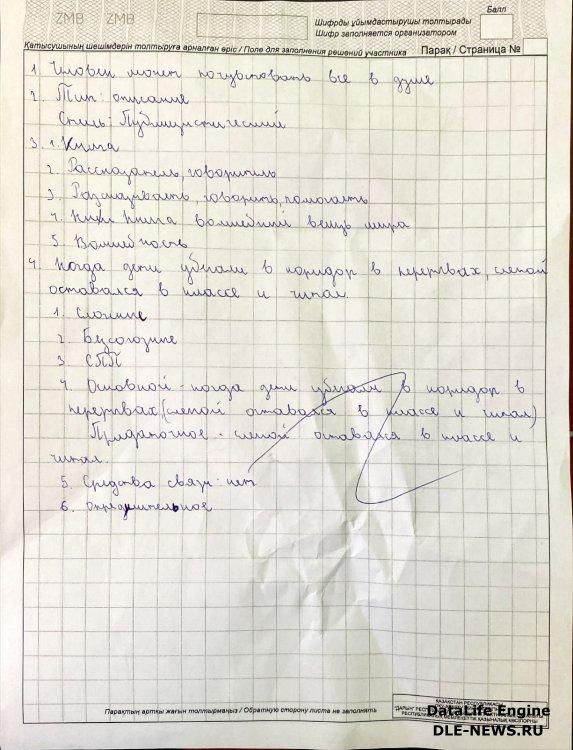 ZMB ZMB
Балл
Шифрды ұйымдастырушы толтырады
Шифр заполняется организатором
Қатысушының шешімдерін толтыруға арналған өріс / Поле для заполнения решений участника Парақ / Страница №
1. Человек может почувствовать все в душе
2. Тип: описание
Стиль: Публицистический
3. 1. Книга
2. Рассказатель, говоритель
3. Разсказывать, говорить, помогать
4. Книга волшебный вещь мира
5. Волшебность
4. Когда дети убегали в коридор в перерывах, слепой
оставался в классе и читал.
1. Сложные
2. Безсоюзные
3 СПП
4. Основной - когда дети убегали в коридор в
перерывах (слепой оставался в классе и читал)
Придаточное - слепой оставался в классе и
читал.
5. Средства связи: нет
6. определительное
Парақтың артқы жағын толтырмаңыз / Обратную сторону листа не заполнять
ҚАЗАҚСТАН РЕСПУБЛИКАСЫ
DataLife Engine
DLE-NEWS.RU